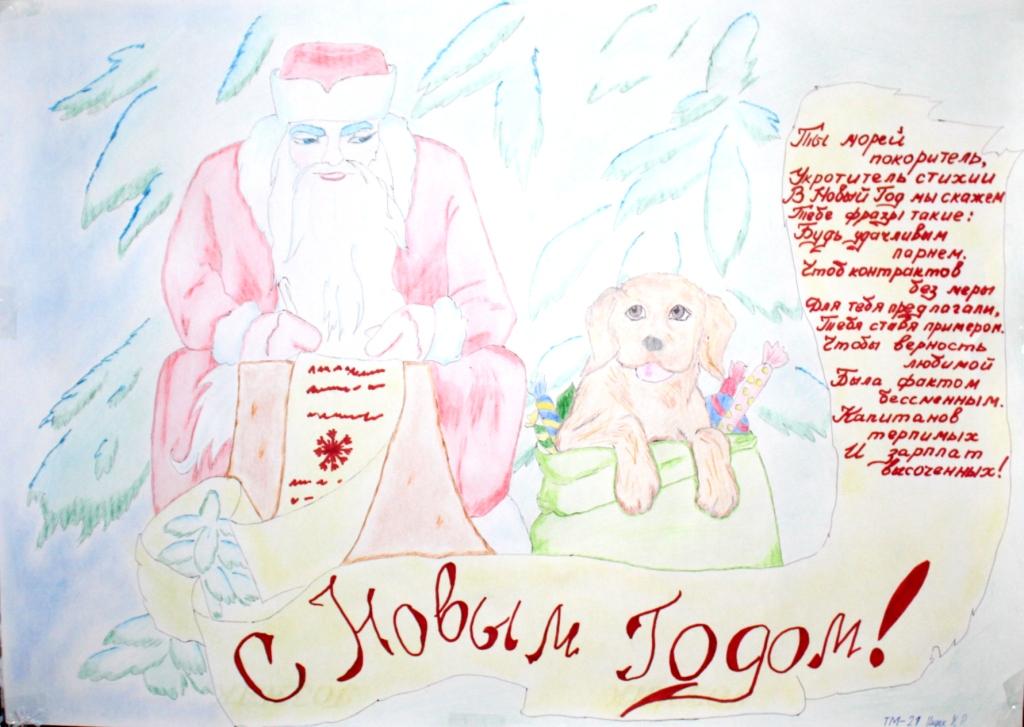 Ты морей
покоритель,
Укротитель стихии
В Новый Год мы скажем
Тебе фразы такие:
Будь удачливым
парнем.
Чтоб контрактов
без меры
Для тебя предлогали,
Тебя ставя примером.
Чтобы верность
любимой
Была фактом
бессменным.
Капитанов
терпимых
И зарплат
высоченных!
С Новым Годом!
ТМ-21